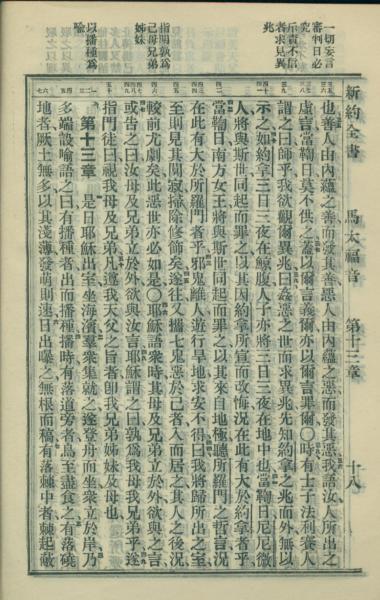 新約全書　馬太福音　第十三章　十八
一切妄言
審判日必
究
斥責不信
者求見異
兆
指明孰為
己母兄弟
姊妹
以播種為
喻
也善人由內蘊之善而發其善惡人由內蘊之惡而發其惡我語汝人所出之
虛言當鞫日莫不供之蓋以爾言義爾亦以爾言罪爾〇時有士子法利賽人
謂之曰師乎我欲觀爾異兆曰姦惡之世而求異兆先知約拿之兆而外無以
示之如約拿三日三夜在鯨腹人子亦將三日三夜在地中也當鞫日尼尼微
人將與斯世同起而罪之以其因約拿所宣而改悔況在此有大於約拿者乎
當鞫日南方女王將與斯世同起而罪之以其來自地極聽所羅門之哲言況
在此有大於所羅門者乎邪鬼離人遊行旱地求安不得曰我將歸所出之室
至則見其閒寂掃除修飾矣遂往又攜七鬼惡於己者入而居之其人之後況
較前尤劇矣此惡世亦必如是〇耶穌語衆時其母及兄弟立於外欲與之言
或告之曰汝母及兄弟立於外欲與汝言謂之曰孰為我母我兄弟乎遂
指門徒曰視我母及我兄弟凡遵我天父之旨者卽我兄弟姊妹及母也
第十三章　是日耶穌出室坐海濱羣衆集就之遂登舟而坐衆立於岸乃
多端設喻語之曰有播種者出而播種播時有落道旁者鳥至盡食之有落磽
地者厥土無多以其淺薄發萌則速日出曝之無根而稿有落棘中者棘起蔽